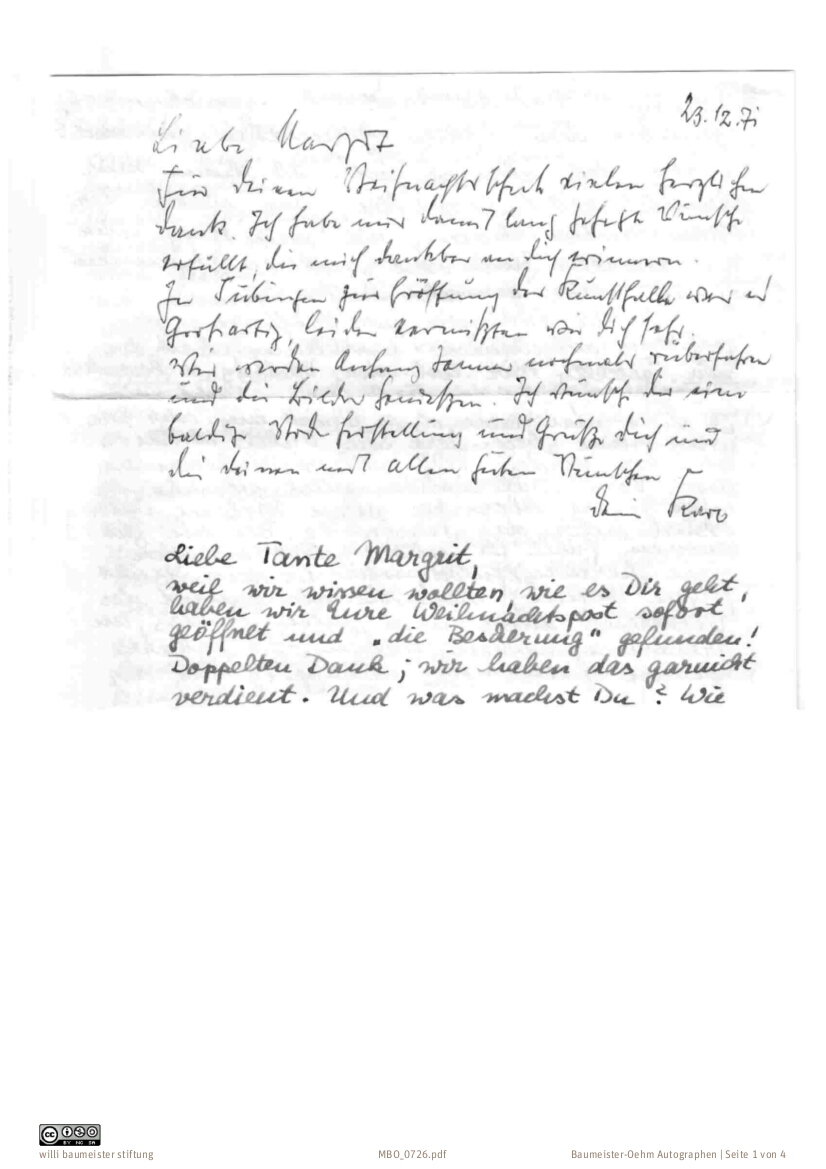 23.12.71
Liebe Margrit
Für deinen Weihnachtsscheck vielen herzlichen
Dank. Ich habe mir damit lang gehegte Wünsche
erfüllt, die mich dankbar an dich erinnern.
In Tübingen zur Eröffnung der Kunsthalle war es
Großartig, leider vermißten wir dich sehr.
Wir werden Anfang Januar nochmals rüberfahren
und die Bilder genießen. Ich wünsche dir eine
baldige Herstellung und Grüße dich und
die deinen mit allen guten Wünschen
dein Karo
Liebe Tante Margrit,
weil wir wissen wollten, wie es Dir geht,
haben wir Eure Weihnachtspost sofort
geöffnet und „die Bescherung" gefunden!
Doppelten Dank; wir haben das garnicht
verdient. Und was machst Du? Wie
CC BY NC SA
willi baumeister stiftung
MBO_0726.pdf
Baumeister-Oehm Autographen | Seite 1 von 4